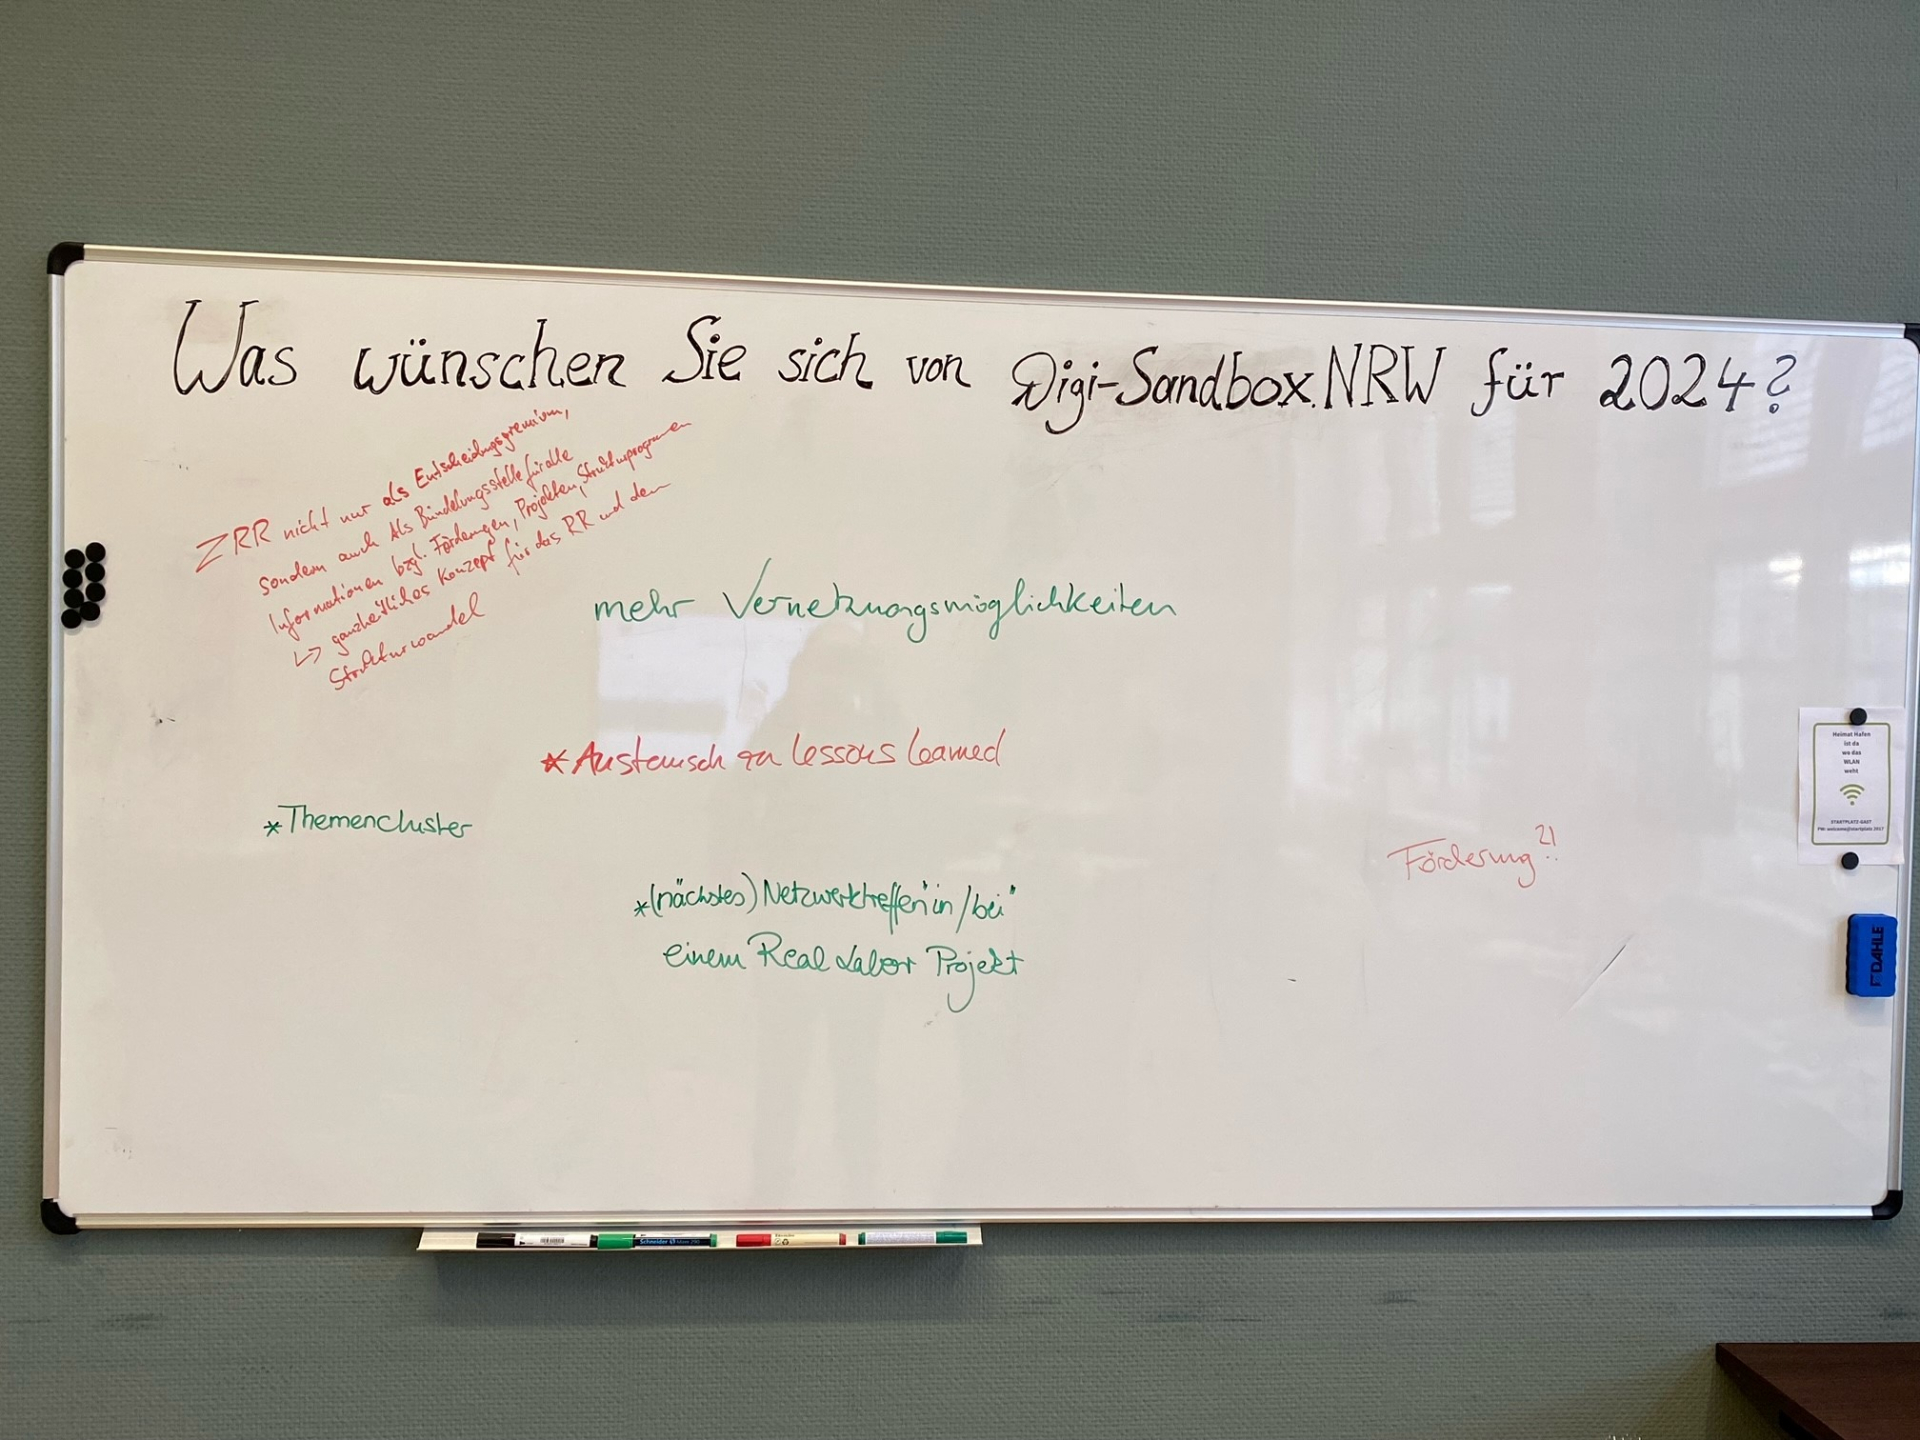 Was wünschen Sie sich von Digi-Sandbox.NRW für 2024?
ZRR nicht nur als Entscheidungsgremium,
sondern auch als Bündelungsstelle für alle
Informationen bzgl. Förderungen, Projekten, Strukturprogrammen
↳ ganzheitliches Konzept für das RR und den
Strukturwandel
mehr Vernetzungsmöglichkeiten
* Austausch zu lessons learned
* Themencluster
* (nächstes) Netzwerktreffen "in/bei"
einem Real Labor Projekt
Förderung?!
Heimat Hafen
ist da
wo das
WLAN
weht
STARTPLATZ-GAST
DAHLE
Schneider